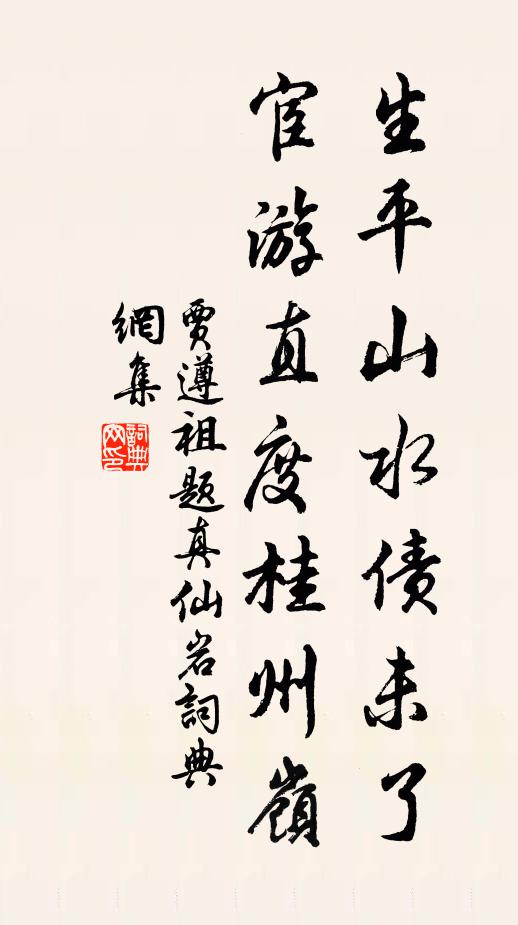 生平山水债未了
宦游直度桂州嶺
賈遵祖题真仙岩詞典
網集
詞典
网印